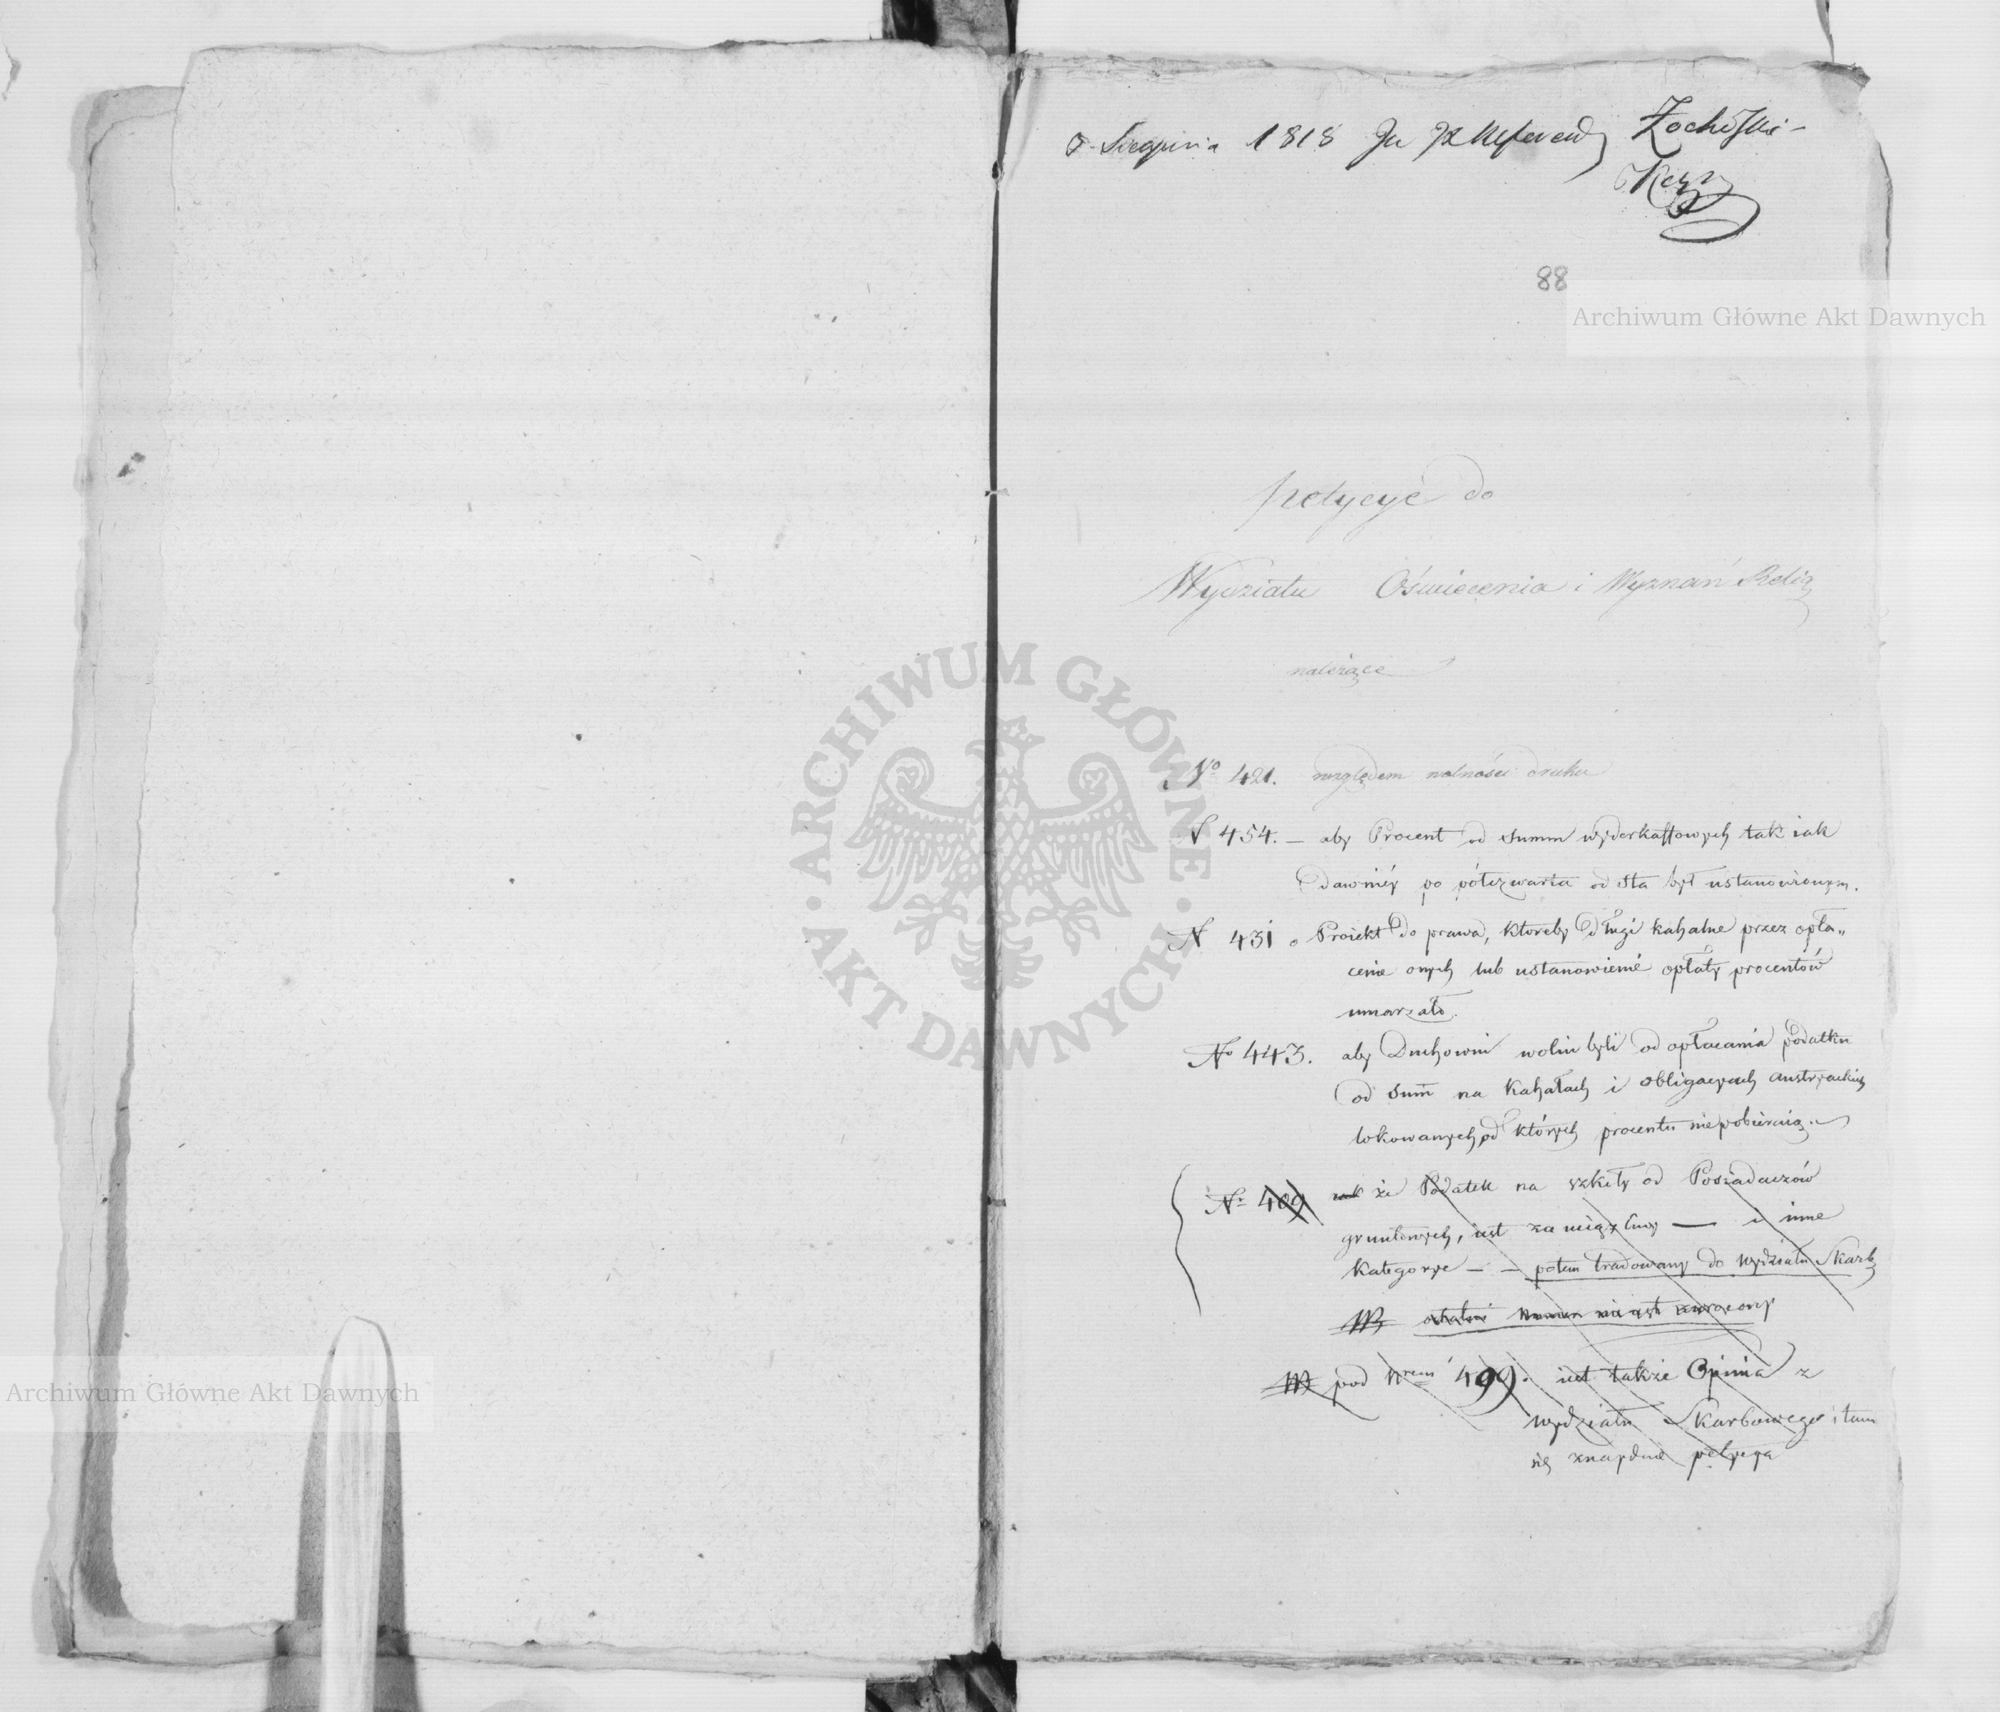 Sierpnia 1818 Ja JX Referend Żochowski
88
Archiwum Główne Akt Dawnych
petycye do
Wydziału Oświecenia i Wyznań Relig
należące
No 421. względem wolności druku
N 454. – aby Procent od summ wyderkaffowych tak iak
dawniéy po półczwarta od sta był ustanowionym.
N 431 Proiekt do prawa, któreby długi kahalne przez opła„
cenie onych lub ustanowienié opłaty procentów
umarzało.
No 443. aby Duchowni wolni byli od opłacania podatku
od summ na Kahałach i obligacyach austryackich
lokowanych, od których procentu niepobieraią.
Nr 409 że Podatek na szkoły od Posiadaczów
gruntowych, iest za uciążliwy — i inne
kategorye – – potem tradowany do wydziału Skarb
NB zwrócony
NB pod Nrem 499. iest także Opinia z
wydziału Skarbowego i tam
się znaydzie petycya
ARCHIWUM GŁÓWNE · AKT DAWNYCH ·
Archiwum Główne Akt Dawnych